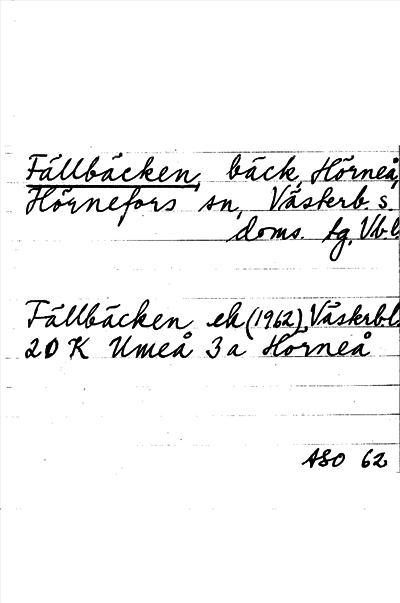 Fällbäcken, bäck, Hörneå,
Hörnefors sn, Västerb. s.
doms. tg, Vb. l.
Fällbäcken ek (1962), Västerb.l.
20 K Umeå 3a Hörneå
ASO 62